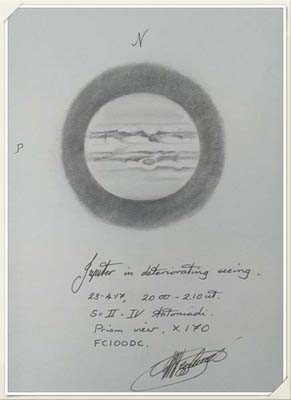 N
P
Jupiter in deteriorating seeing.
23-4-17, 2000 - 210ut.
S = II - IV Antoniadi.
Prism view, X170
FC100DC.